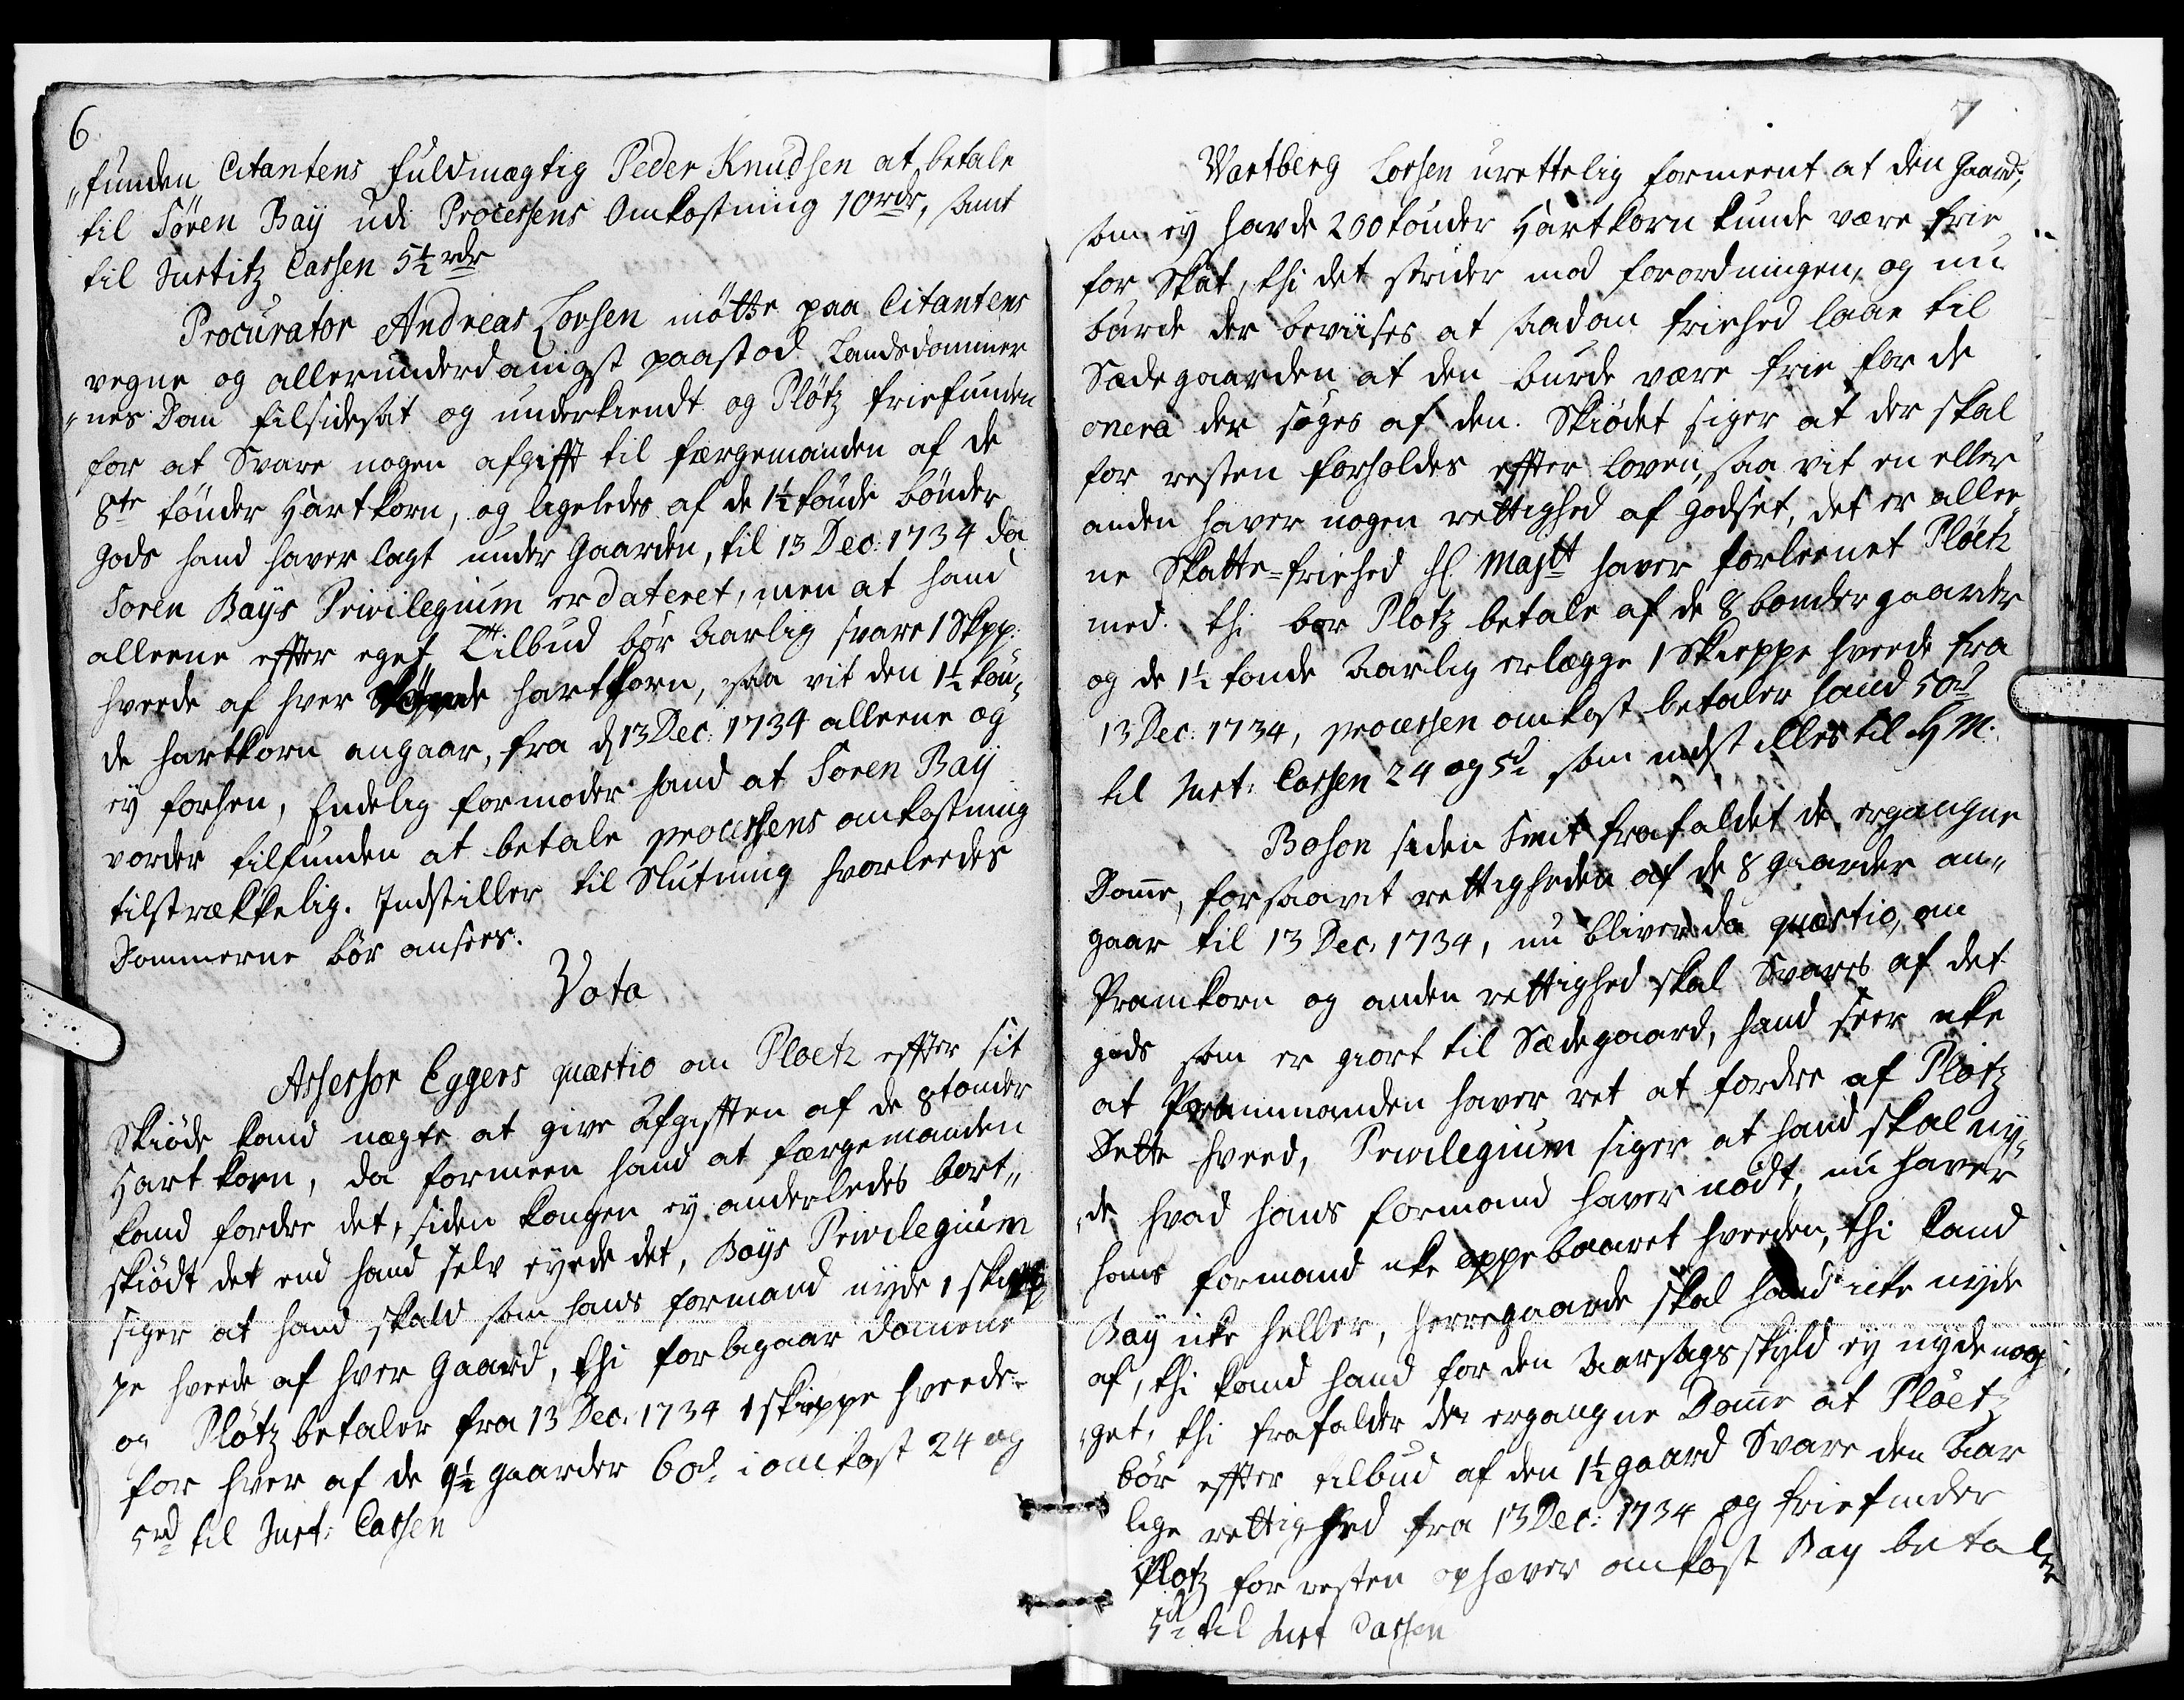 6.
„funden Citantens fuldmægtig Peder Knudsen at betale
til Søren Baÿ udi Processens Omkostning 10 rdr, samt
til Justitz Cassen 5½ rdr
Procurator Andreas Lovsen mötte paa Citantens
vegne og allerunderdanigst paastod Landsdommer
„nes Dom tilsidesat og underkiendt og Plötz friefunden
for at Svare nogen afgifft til færgemanden af de
8te tönder Hartkorn, og ligeledes af de 1½ tönde bönder
gods hand haver lagt under Gaarden, til 13 Dec: 1734 da
Soren Baÿs Privilegium er dateret, men at hand
alleene effter eget Tilbud bör Aarlig svare 1 Skpp:
hveede af hver tönde hartkorn, saa vit den 1½ tön„
de hartkorn angaar, fra d 13 Dec: 1734 alleene og
eÿ forhen, Endelig formoder hand at Soren Baÿ
vorder tilfunden at betale processens omkostning
tilstrækkelig. Indstiller til Slutning hvorleedes
Dommerne bör ansees.
Vota
Assessor Eggers quæstio om Ploetz effter sit
Skiöde kand nægte at give Afgifften af de 8 tonder
Hart korn, da formeen hand at færgemanden
kand fordre det, siden kongen eÿ anderledes bort„
skiödt det end hand selv eÿede det, Baÿs Privilegium
siger at hand skald som hans formand nÿde 1 skiep
pe hveede af hver Gaard, thi forbigaar domene
og Plötz betaler fra 13 Dec: 1734 1 skieppe hveede
for hver af de 9½ gaarder 60d. i omkost 24 og
5rd til Just: Cassen
7
Wartberg Lovsen urettelig formeent at den Gaard,
som eÿ havde 200 tönder Hartkorn kunde være frie
for Skat, thi det strider mod forordningen, og nu
burde der beviises at saadan friehed laae til
Sædegaarden at den burde være frie for de
onera der söges af den. Skiödet siger at der skal
for resten forholdes effter loven, saa vit en eller
anden haver nogen rettighed af godset, det er allee„
ne Skatte=friehed H Majtt haver forleenet Ploetz
med. thi bor Plotz betale af de 8 bondergaarder
og de 1½ tonde Aarlig erlægge 1 Skieppe hveede fra
13 Dec: 1734, processen omkost betaler hand 50d
til Just: Cassen 24 og 5d som indstilles til H M.
Boson siden Smit frafaldet de ergangne
Dome, forsaavit rettigheden af de 8 gaarder an„
gaar til 13 Dec: 1734, nu bliver da quæstio, om
Pramkorn og anden rettighed skal Svares af det
gods som er giort til Sædegaard, hand seer icke
at Prammanden haver ret at fordre af Plötz
Dette hveed, Privilegium siger at hand skal nÿ„
„de hvad hans formand haver nödt, nu haver
hans formand icke oppebaaret hveeden, thi kand
Baÿ icke heller, herregaarde skal hand icke nÿde
af, thi kand hand for den Aarsags skyld eÿ nyde nog
„get, thi frafalder de ergangne Dome at Ploetz
bör effter tilbud af den 1½ gaard Svare den Aar
lige rettighed fra 13 Dec: 1734 og friefinder
Plotz for resten ophæver omkost Bay betaler
5d til Just Cassen